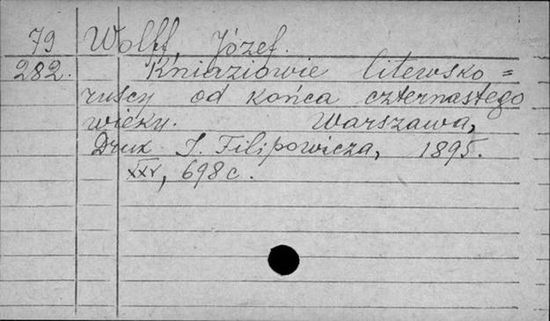 79 Wolff, Józef.
282. Kniaziowie litewsko=
ruscy od końca czternastego
wieky. Warszawa,
Druk J. Filipowicza, 1895.
XXV, 698 c.